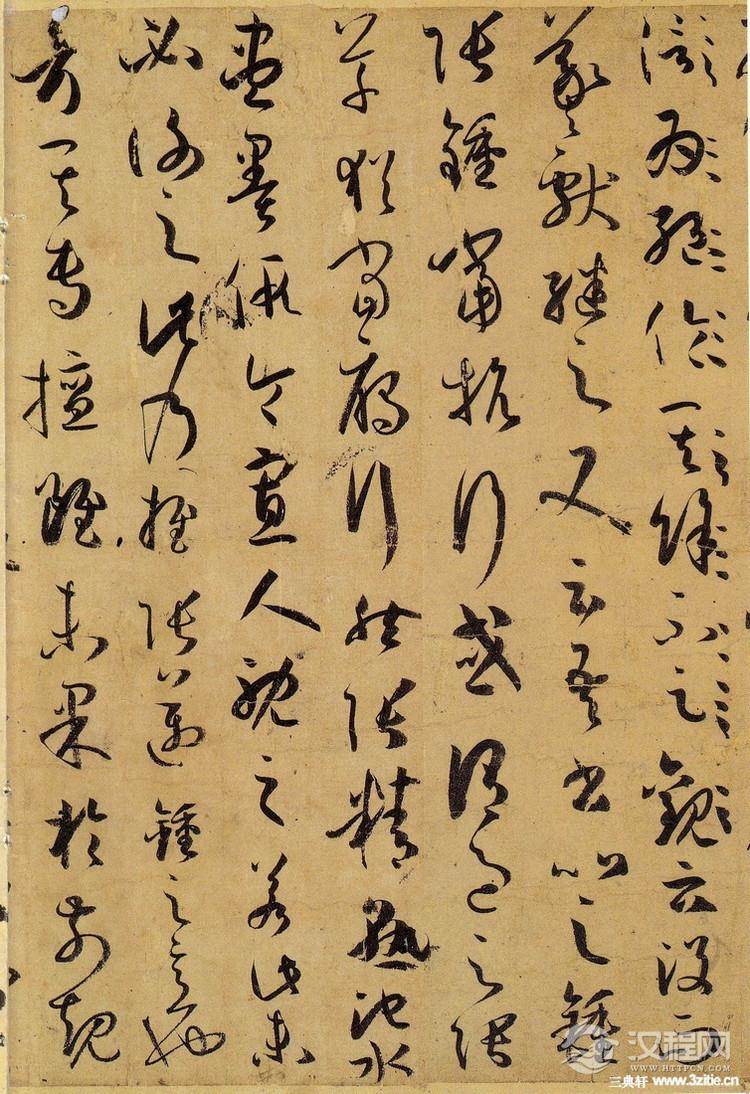 為絕倫其餘不足觀云沒而
羲獻繼之又云吾書比之鍾
張鍾當抗行或謂過之張
草猶當鴈行然張精熟池水
盡墨假令寡人耽之若此未
必謝之此乃推張邁鍾之意也
考其專擅雖未果於前規
汉程网
WWW.HTTPCN.COM
三典轩 www.3zitie.cn